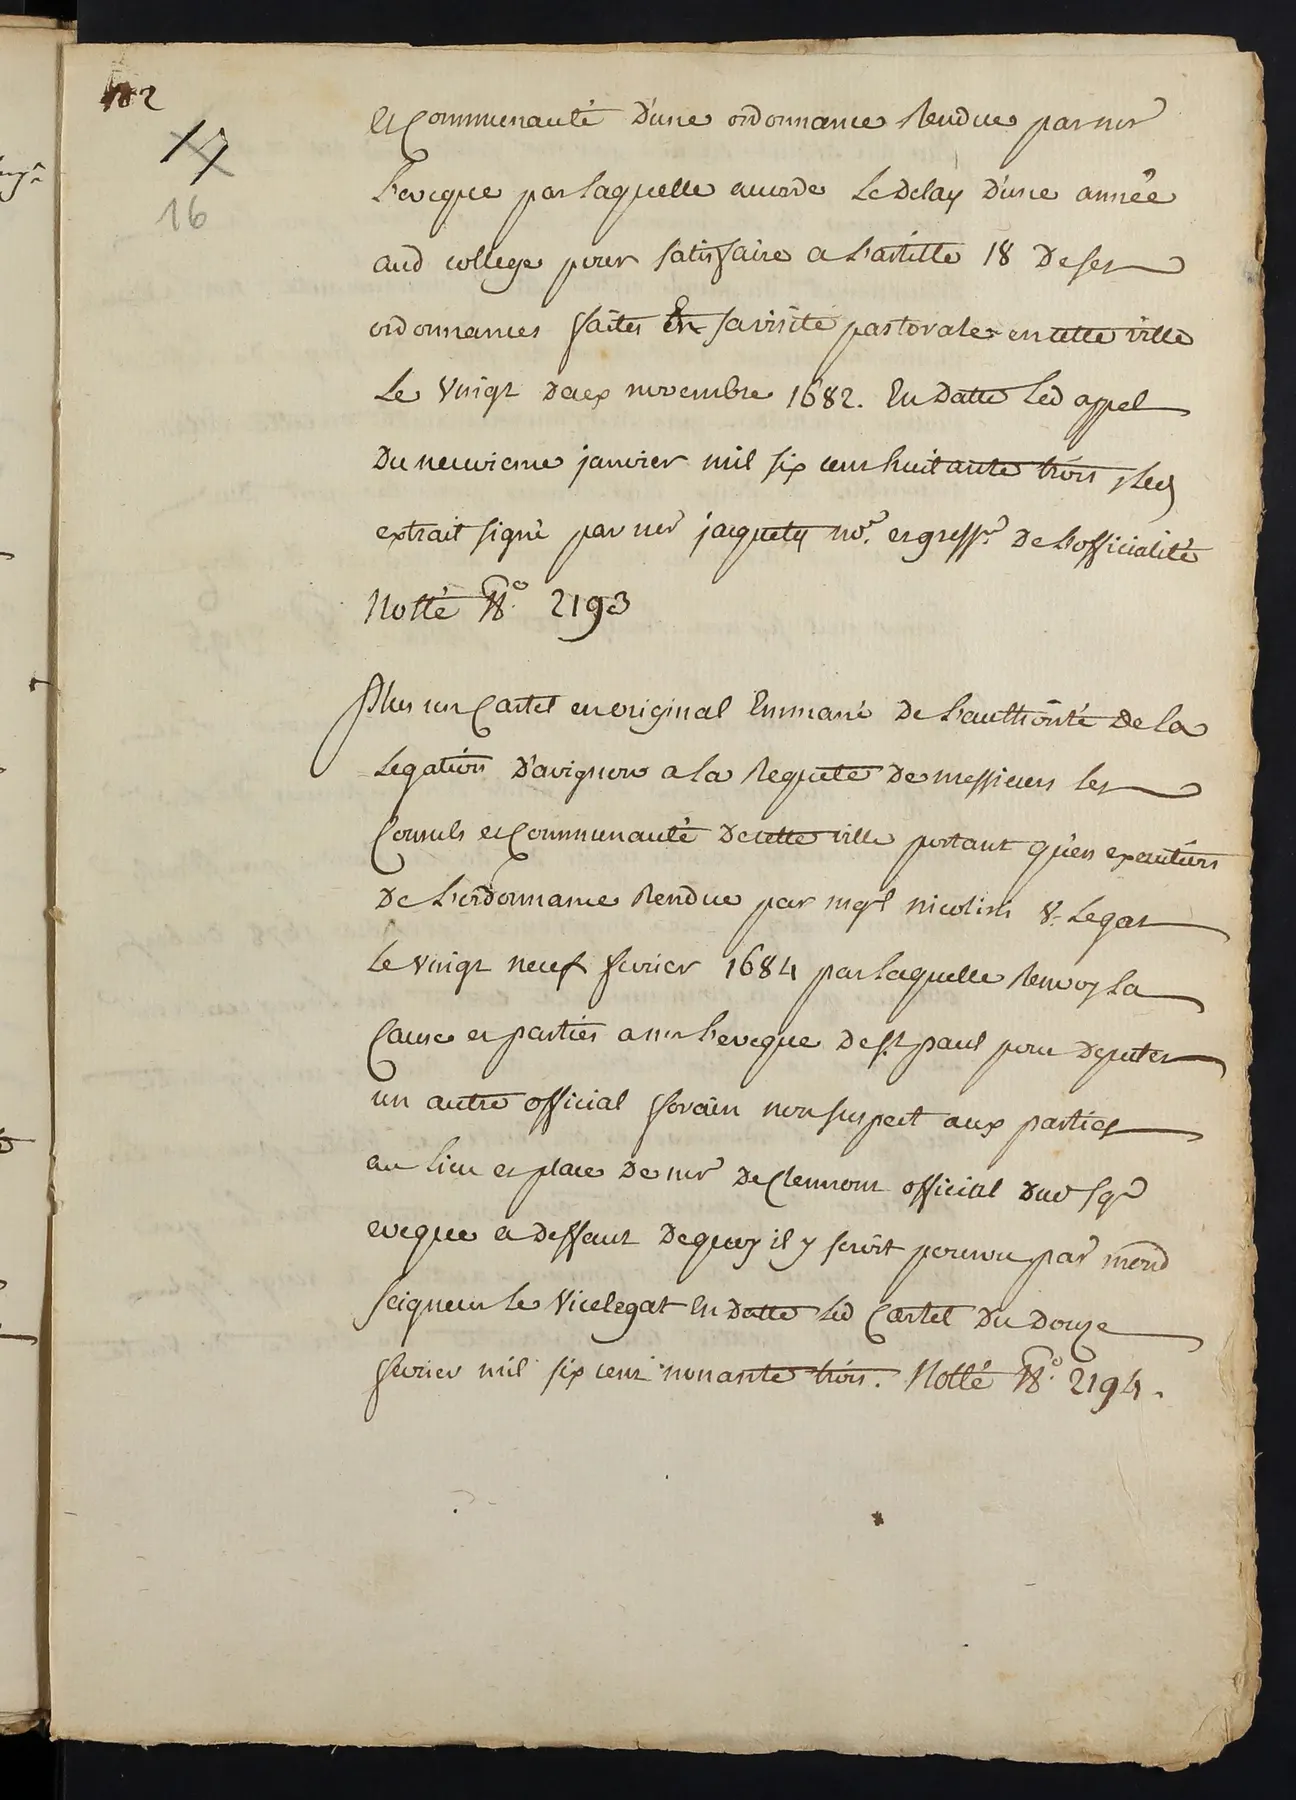 102
17
16
et Communauté D'une ordonnance Rendue par mr
L'eveque par laquelle accorde Le Delay D'une année
aud college pour satisfaire a L'article 18 De ses
ordonnances faites En sa visite pastorale en cette ville
Le Vingt Deux novembre 1682. En Datte Led appel
Du neuvieme janvier mil six cens huitante trois, Led
extrait signé par mr jacquety no.re et greff.r De L'officialité
Notté N.o 2193
Plus un Cartel en original Emmané De L'authorité De la
Legation D'avignon a la Requete De messieurs les
Consuls et Communauté De cette ville portant qu'en execution
De L'ordonnance Rendue par mgr nicolini V. Legat
Le vingt neuf fevrier 1684 par laquelle Renvoy La
Cause et parties a mr L'eveque De st paul pour Deputer
un autre official forain non suspect aux parties
au lieu et place De mr De Clermont official Dud sgr
eveque a deffaut De quoy il y seroit pourvu par mond
seigneur Le Vicelegat En Datte Led Cartel Du Douze
fevrier mil six cent nonante trois. Notté N.o 2194.